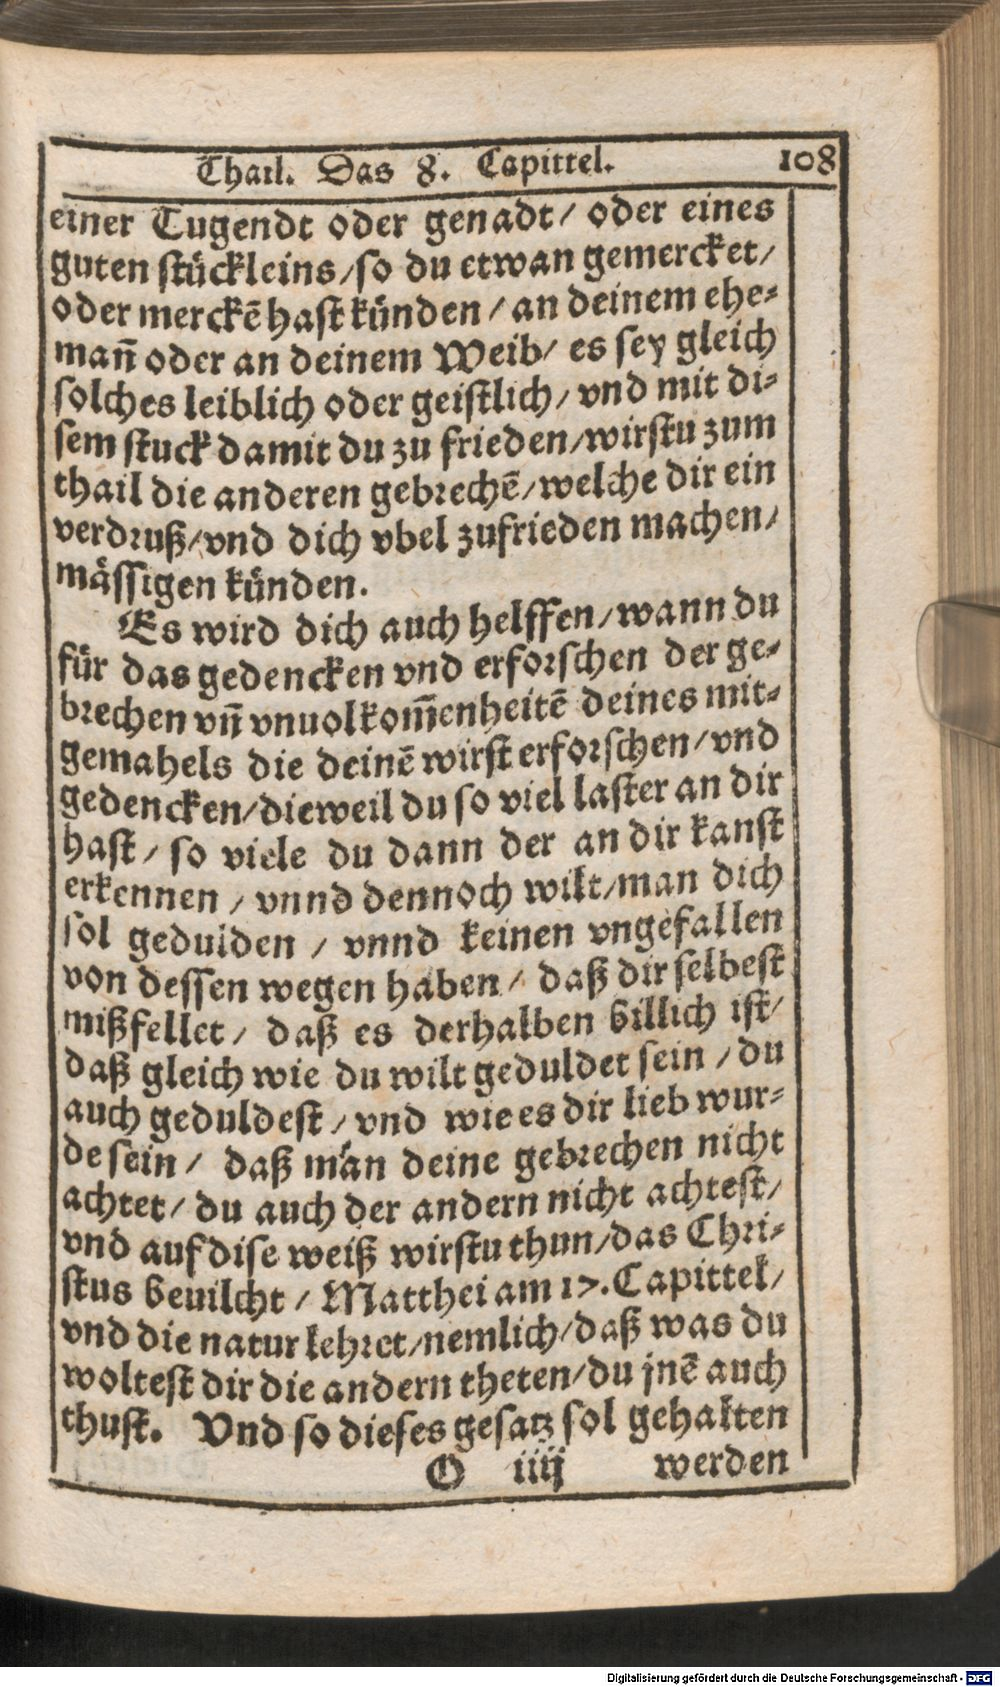 Thail. Das 8. Capittel. 108
einer Tugendt oder genadt/ oder eines
guten stückleins/so du etwan gemercket/
oder merckẽ hast künden/ an deinem ehe-
mañ oder an deinem Weib/ es sey gleich
solches leiblich oder geistlich/ vnd mit di-
sem stuck damit du zu frieden/wirstu zum
thail die anderen gebrechẽ/welche dir ein
verdruß/vnd dich vbel zufrieden machen/
mässigen künden.
Es wird dich auch helffen/wann du
für das gedencken vnd erforschen der ge-
brechen vñ vnuolkom̃enheitẽ deines mit-
gemahels die deinẽ wirst erforschen/vnd
gedencken/dieweil du so viel laster an dir
hast/ so viele du dann der an dir kanst
erkennen/ vnnd dennoch wilt/man dich
sol gedulden/ vnnd keinen vngefallen
von dessen wegen haben/ daß dir selbest
mißfellet/ daß es derhalben billich ist/
daß gleich wie du wilt geduldet sein/du
auch geduldest/ vnd wie es dir lieb wur-
de sein/ daß man deine gebrechen nicht
achtet/ du auch der andern nicht achtest/
vnd auf dise weiß wirstu thun/das Chri-
stus beuilcht/ Matthei am 17. Capittel/
vnd die natur lehret/nemlich/daß was du
woltest dir die andern theten/du jnẽ auch
thust. Vnd so dieses gesatz sol gehalten
O iiij werden
Digitalisierung gefördert durch die Deutsche Forschungsgemeinschaft - DFG